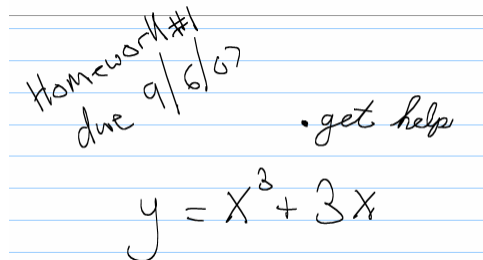 Homework #1
due 9/6/07
• get help
y = x³ + 3x